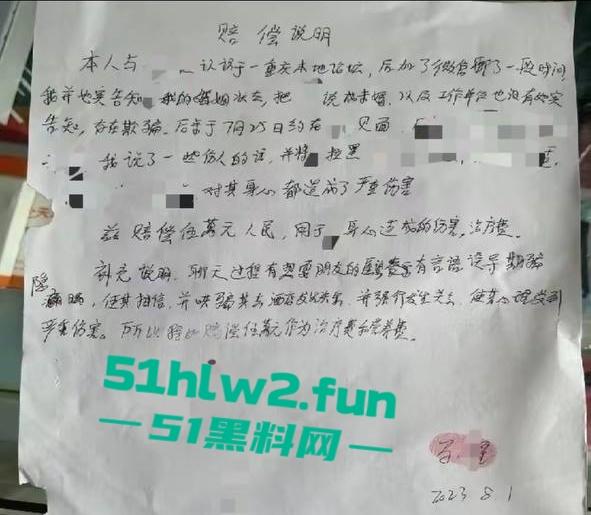 赔偿说明
本人与 认识于一重庆本地论坛,后加了微信聊了一段时间
我并也实告知 我的婚姻状态,把 说成未婚,以及工作单位也没有如实
告知,存在欺骗。后于7月25日约在 见面
我说了一些伤人的话,并将 拉黑
对其身心都造成了严重伤害
兹赔偿伍萬元人民,用于 身心造成的伤害。治疗费。
补充说明,聊天过程有想要朋友的 有言语误导期骗
隐瞒,使其相信,并哄骗其去酒店发生关系,并强行发生关系,使其心理受到
严重伤害。所以特此赔偿伍萬元作为治疗费和营养费。
51hlw2.fun
51黑料网
2023 8.1